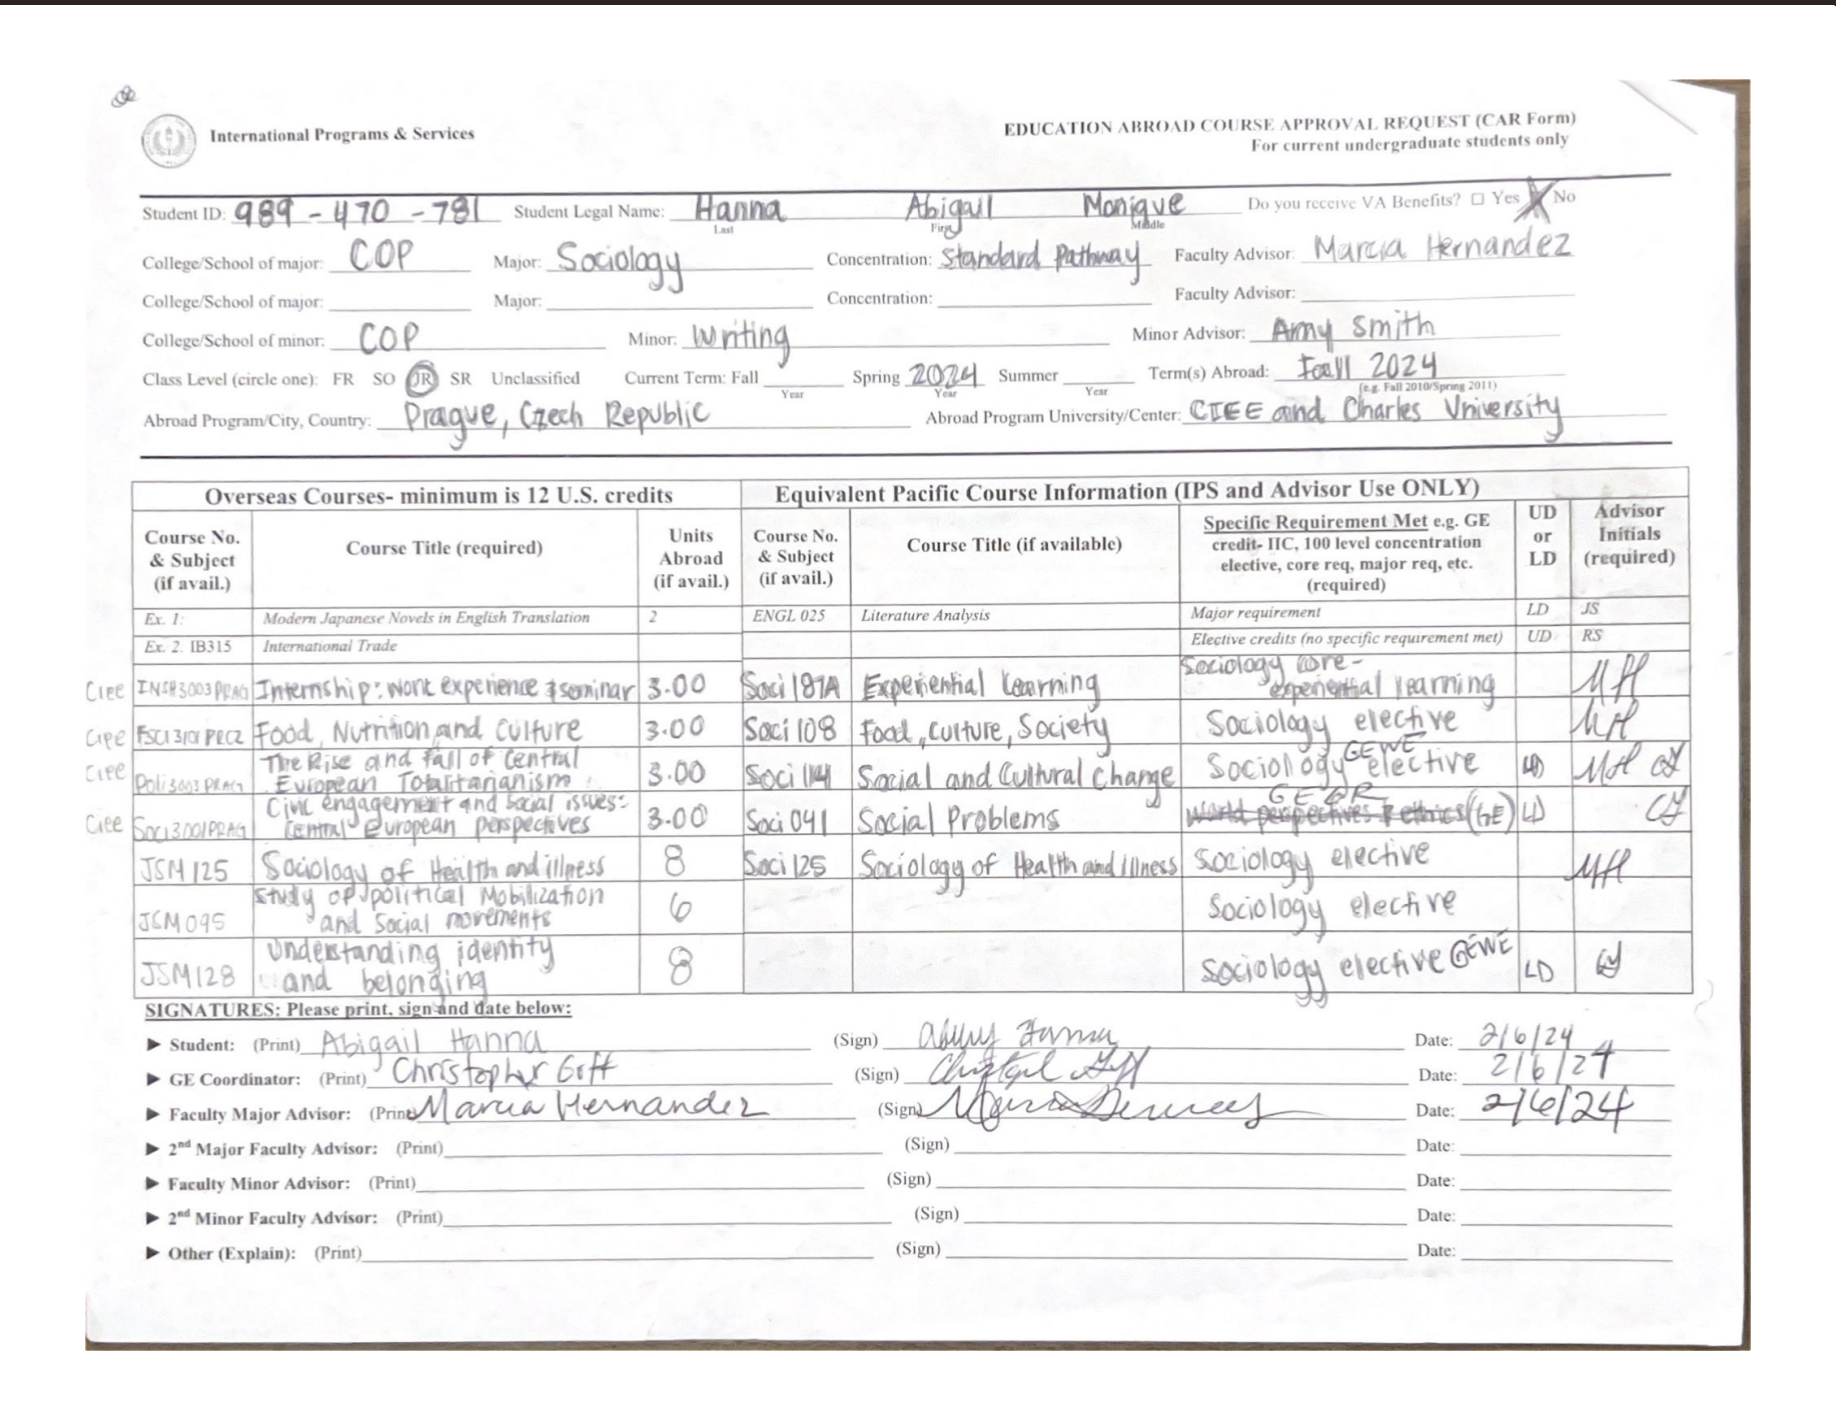 International Programs & Services
EDUCATION ABROAD COURSE APPROVAL REQUEST (CAR Form)
For current undergraduate students only
Student ID: 989-470-781 Student Legal Name: Hanna Abigail Monique Do you receive VA Benefits? ☐ Yes No
Last First Middle
College/School of major: COP Major: Sociology Concentration: Standard Pathway Faculty Advisor: Marcia Hernandez
College/School of major: Major: Concentration: Faculty Advisor:
College/School of minor: COP Minor: Writing Minor Advisor: Amy Smith
Class Level (circle one): FR SO JR SR Unclassified Current Term: Fall Spring 2024 Summer Term(s) Abroad: Fall 2024
Year Year Year (e.g. Fall 2010/Spring 2011)
Abroad Program/City, Country: Prague, Czech Republic Abroad Program University/Center: CIEE and Charles University
Overseas Courses- minimum is 12 U.S. credits Equivalent Pacific Course Information (IPS and Advisor Use ONLY)
Course No. & Subject (if avail.) Course Title (required) Units Abroad (if avail.) Course No. & Subject (if avail.) Course Title (if available) Specific Requirement Met e.g. GE credit- IIC, 100 level concentration elective, core req, major req, etc. (required) UD or LD Advisor Initials (required)
Ex. 1: Modern Japanese Novels in English Translation 2 ENGL 025 Literature Analysis Major requirement LD JS
Ex. 2. IB315 International Trade Elective credits (no specific requirement met) UD RS
CIEE INSH3003 PRAG Internship: work experience & seminar 3.00 Soci 187A Experiential Learning Sociology core- experiential learning MH
CIEE Food, Nutrition, and Culture 3.00 Soci 108 Food, Culture, Society Sociology elective MH
CIEE Poli3003 PRAG The Rise and fall of Central European Totalitarianism 3.00 Soci 114 Social and Cultural Change Sociology elective GEWE MH
CIEE Soci3001PRAG Civic engagement and social issues: Central European perspectives 3.00 Soci 041 Social Problems World perspectives & ethics (GE) LD
JSM125 Sociology of Health and illness 8 Soci 125 Sociology of Health and illness Sociology elective MH
JSM095 Study of political Mobilization and social movements 6 Sociology elective
JSM128 Understanding identity and belonging 8 Sociology elective GEWE LD
SIGNATURES: Please print, sign and date below:
► Student: (Print) Abigail Hanna (Sign) Date: 2/6/24
► GE Coordinator: (Print) Christopher Goff (Sign) Date: 2/6/24
► Faculty Major Advisor: (Print) Marcia Hernandez (Sign) Date: 2/6/24
► 2nd Major Faculty Advisor: (Print) (Sign) Date:
► Faculty Minor Advisor: (Print) (Sign) Date:
► 2nd Minor Faculty Advisor: (Print) (Sign) Date:
► Other (Explain): (Print) (Sign) Date: